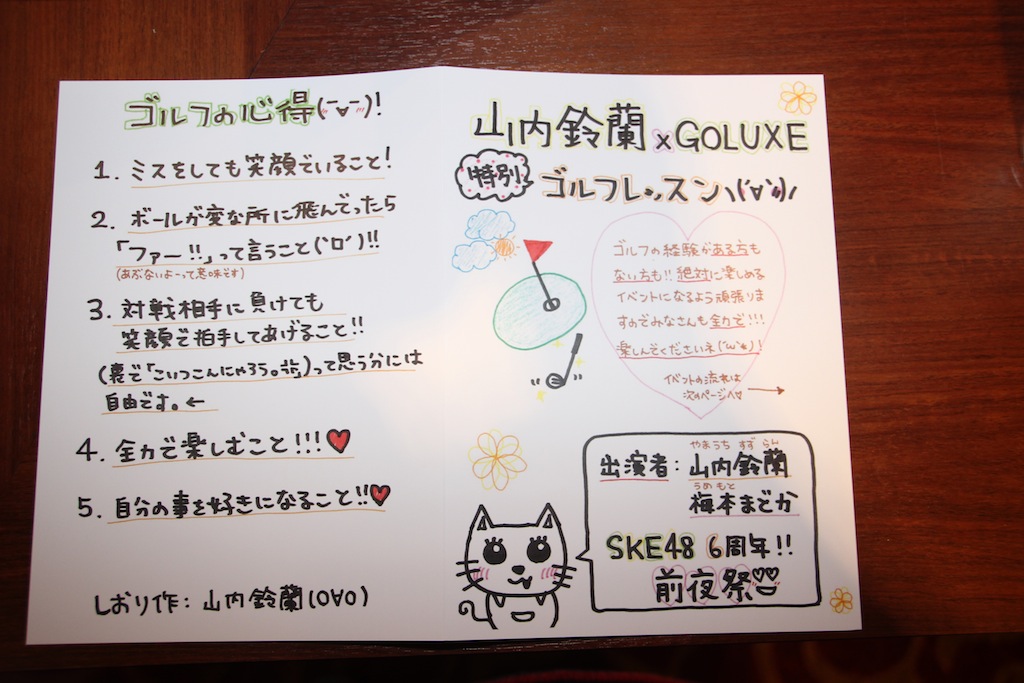 ゴルフの心得(ｰ∀ｰ)!
1. ミスをしても笑顔でいること!
2. ボールが変な所に飛んでったら
「ファー!!」って言うこと(`ロ´)!!
(あぶないよーって意味です)
3. 対戦相手に負けても
笑顔で拍手してあげること!!
(裏で「こいつこんにゃろう。」って思う分には
自由です。←
4. 全力で楽しむこと!!!♥
5. 自分の事を好きになること!!♥
しおり作: 山内鈴蘭(0∀0)
山内鈴蘭×GOLUXE
特別 ゴルフレッスン\(´∀`)/
ゴルフの経験がある方も
ない方も!! 絶対に楽しめる
イベントになるよう頑張りま
すのでみなさんも全力で!!!
楽しんでくださいネ(´ω`*)!
イベントの流れは
次のページへ♡ →
やまうち すず らん
出演者: 山内鈴蘭
うめ もと
梅本まどか
SKE48 6周年!!
前夜祭